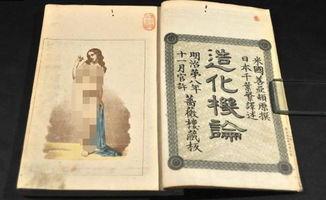 米國善亞頓原撰
日本千葉繁譯述
造化機論
明治第八年
十一月官許
薔薇樓藏板